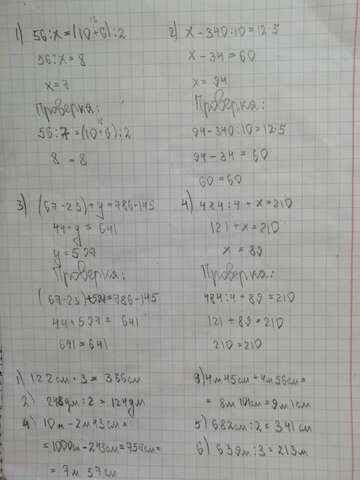 1) 56:x=(10+6):2
16
56:x=8
x=7
Проверка:
56:7=(10+6):2
8=8
2) x-340:10=12·5
x-34=60
x=94
Проверка:
94-340:10=12·5
94-34=60
60=60
3) (67-23)+y=786-145
44+y=641
y=597
Проверка:
(67-23)+597=786-145
44+597=641
641=641
4) 484:4+x=210
121+x=210
x=89
Проверка:
484:4+89=210
121+89=210
210=210
1) 122см·3=366см
2) 248дм:2=124дм
4) 10м-2м43см=
=1000м-243см=757см=
=7м57см
3) 4м45см+4м56см=
=8м101см=9м1см
5) 682см:2=341см
6) 639м:3=213м